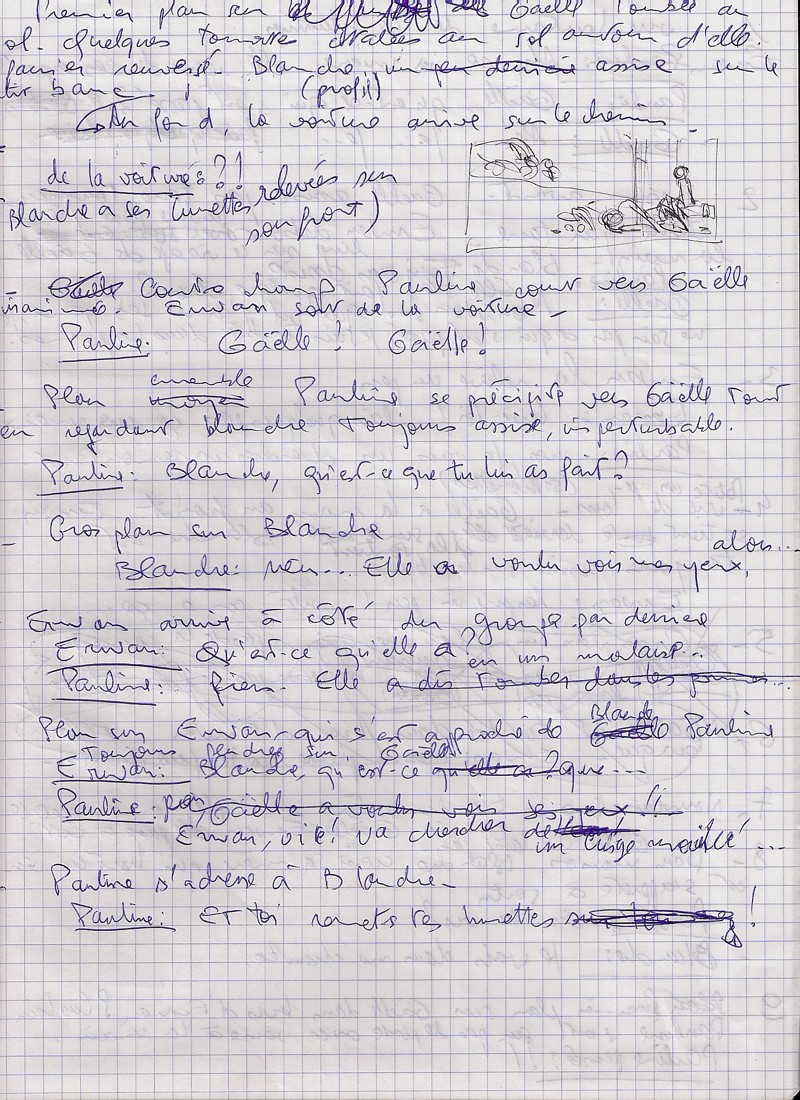 Premier plan sur Gaëlle tombée au
ol. Quelques tomates étalées au sol autour d'elle.
panier renversé. Blanche, un peu derrière assise sur le
tit banc. (profil)
Au fond, la voiture arrive sur le chemin
de la voiture ?!
Blanche a ses lunettes relevées sur
son front)
- Contre champ Pauline court vers Gaëlle
inanimée. Erwan sort de la voiture -
Pauline: Gaëlle! Gaëlle!
- Plan ensemble moyen Pauline se précipite vers Gaëlle tout
en regardant Blanche toujours assise, imperturbable.
Pauline: Blanche, qu'est-ce que tu lui as fait?
- Gros plan sur Blanche
Blanche: Elle a voulu voir mes yeux, alors...
Erwan arrive à côté du groupe par derrière
Erwan: Qu'est-ce qu'elle a?
Pauline: Rien. Elle a eu un malaise... a dû tomber dans les pommes...
Plan sur Erwan qui s'est approché de Blanche Pauline
Toujours penchée sur Gaëlle
Erwan: Blanche, qu'est-ce qu'elle a? que...
Pauline: Gaëlle a voulu voir ses yeux!!
Erwan, vite! va chercher un linge mouillé! ...
Pauline s'adresse à Blanche -
Pauline: Et toi remets tes lunettes !